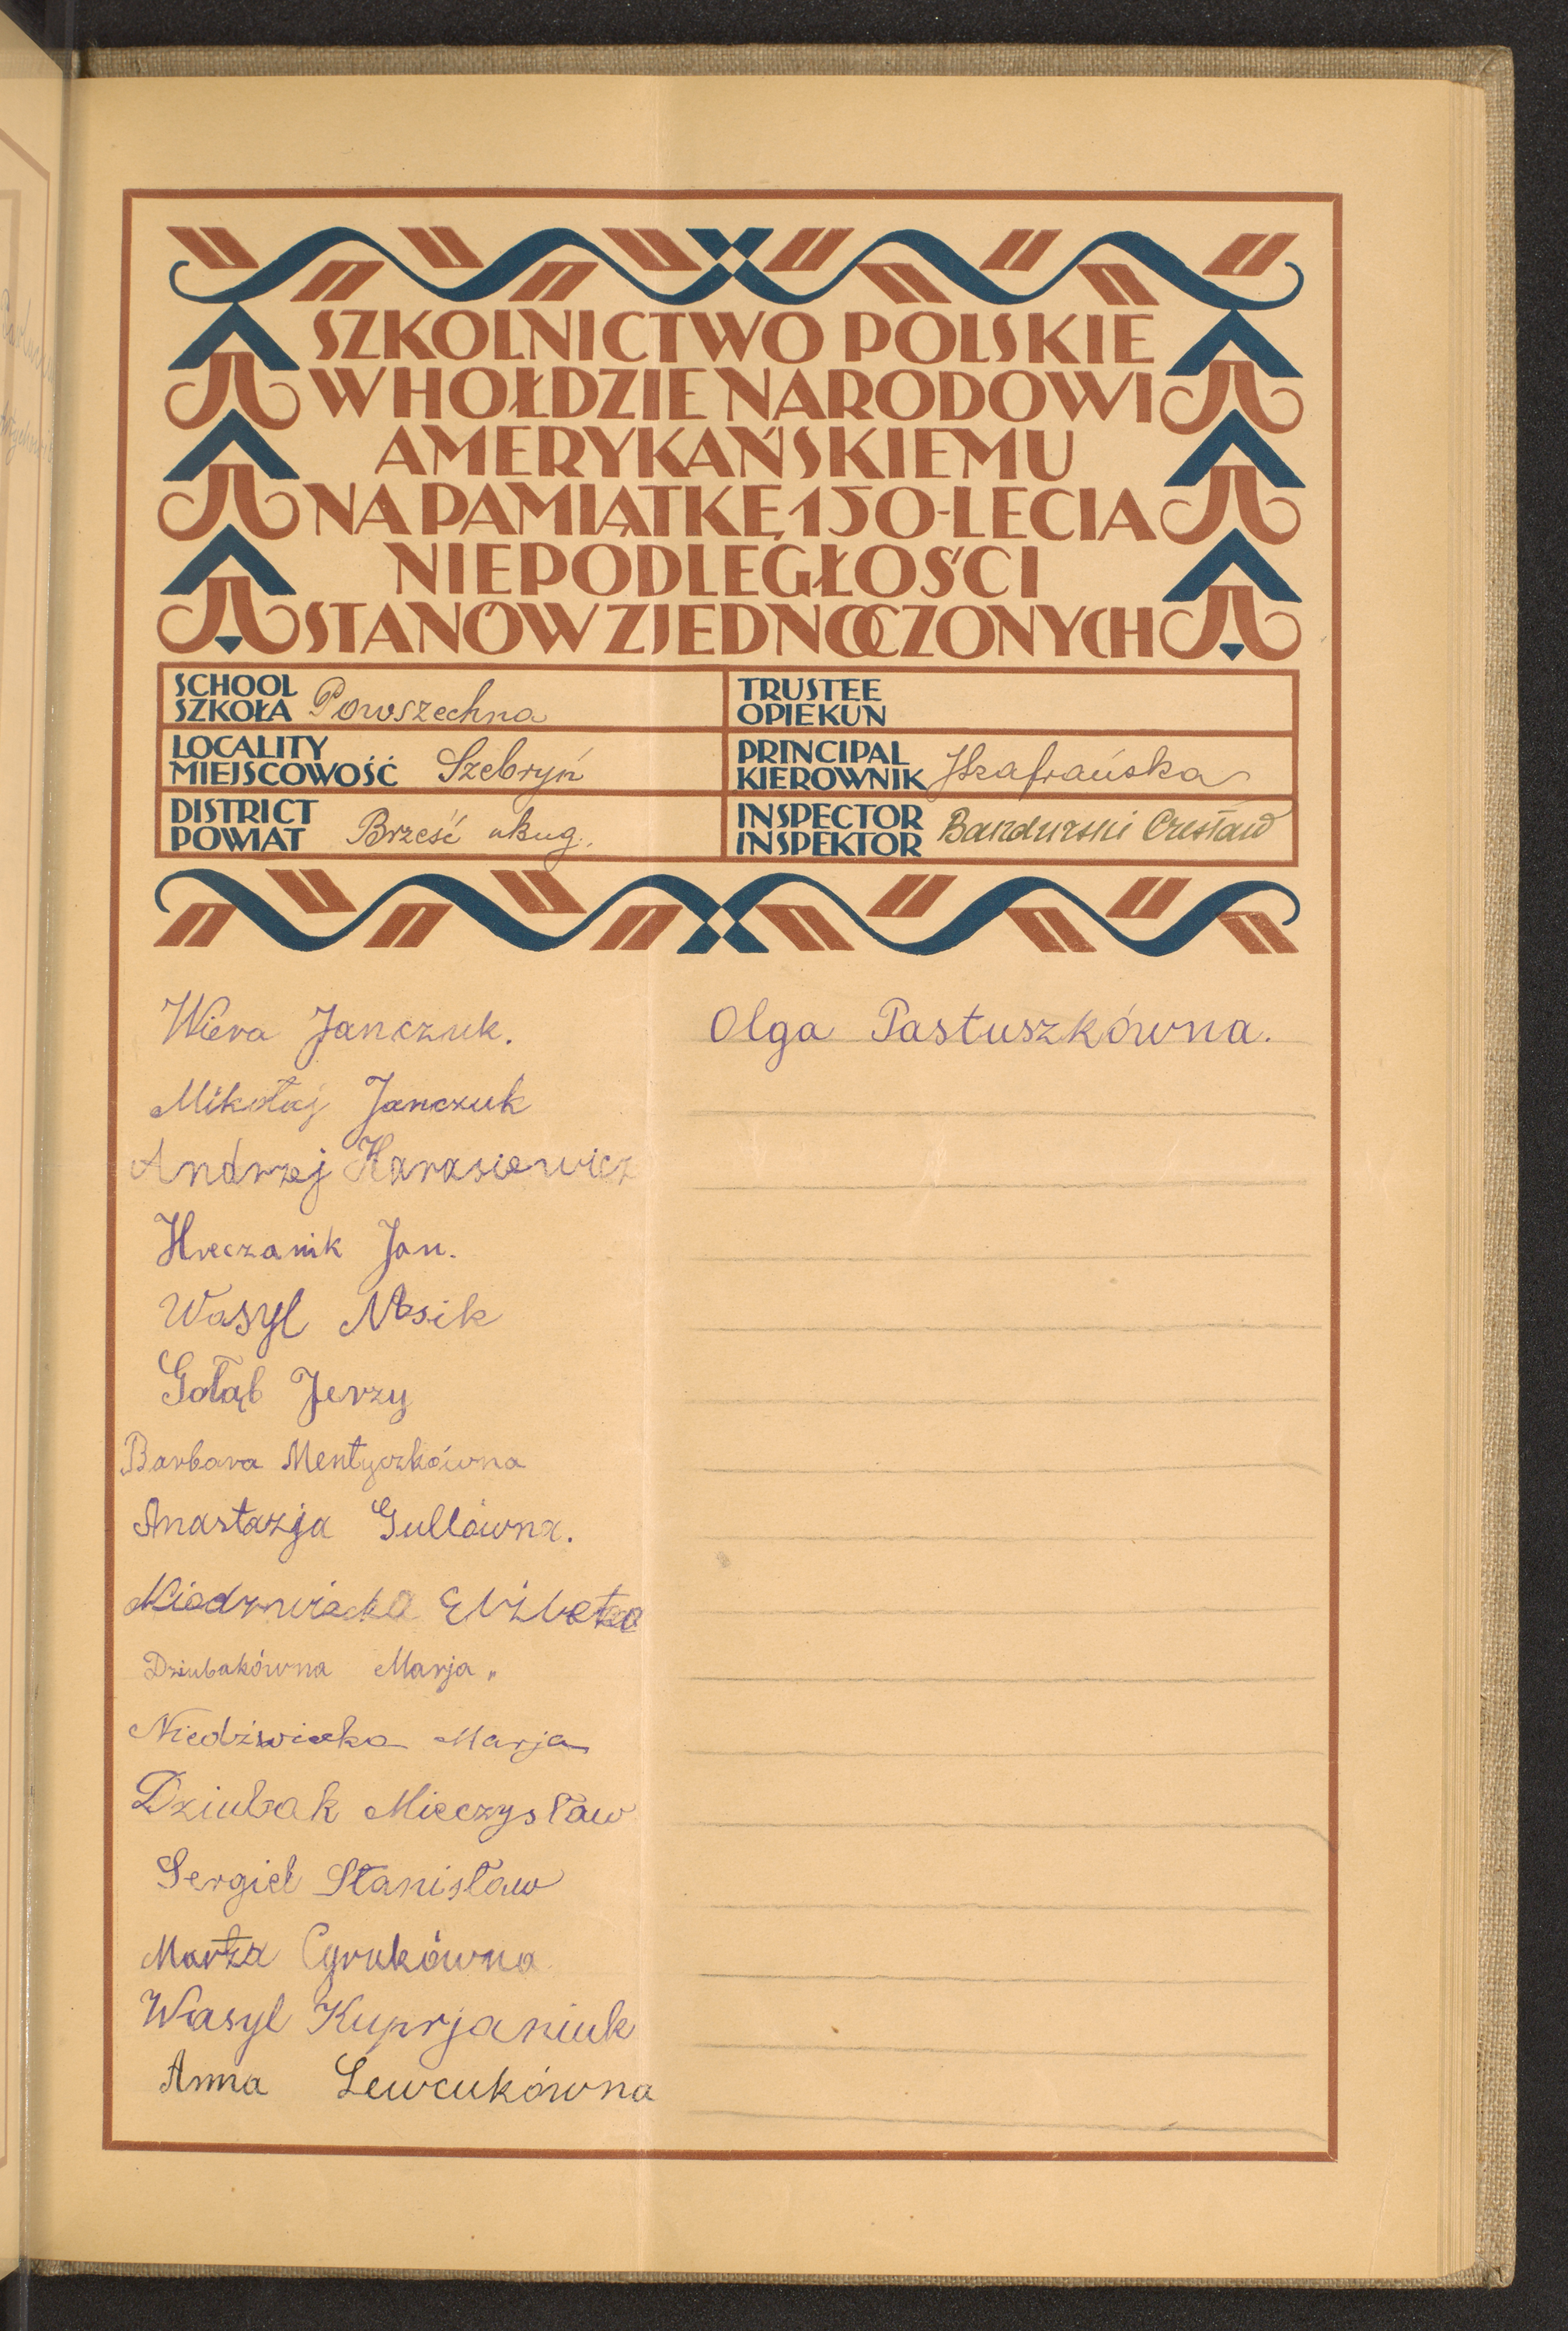 SZKOLNICTWO POLSKIE
W HOŁDZIE NARODOWI
AMERYKAŃSKIEMU
NA PAMIĄTKĘ 150-LECIA
NIEPODLEGŁOŚCI
STANÓW ZJEDNOCZONYCH
SCHOOL
SZKOŁA Powszechna
TRUSTEE
OPIEKUN
LOCALITY
MIEJSCOWOŚĆ Szebryń
PRINCIPAL
KIEROWNIK JSzafrańska
DISTRICT
POWIAT Brześć nBug.
INSPECTOR
INSPEKTOR Bandurski Czesław
Wiera Janczuk.
Mikołaj Janczuk
Andrzej Harasiewicz
Hreczanik Jan.
Wasyl Nosik
Gołąb Jerzy
Barbara Mentyczkówna
Anastazja Gullówna.
Elżbieta
Dziubakówna Marja.
Niedźwiecka Marja
Dziubak Mieczysław
Sergiel Stanisław
Marta Cyrukówna
Wasyl Kuprjaniuk
Anna Lewcukówna
Olga Pastuszkówna.